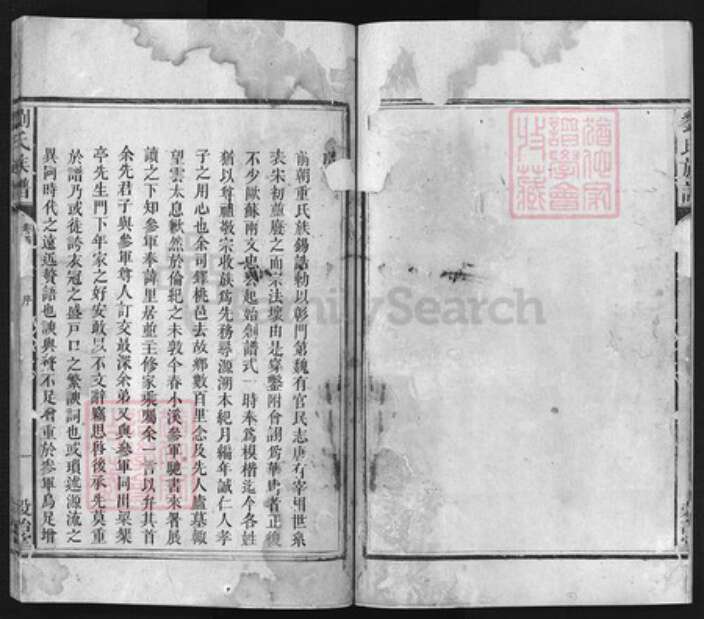 序
前朝重氏族錫誥勅以彰門第魏有官民志唐有宰相世系
表宋初並廢之而宗法壞由是穿鑿附會謂爲華冑者正復
不少歐蘇兩文忠公起始創譜式一時奉爲模楷迄今各姓
猶以尊祖敬宗收族爲先務尋源溯本紀月編年誠仁人孝
子之用心也余司鐸桃邑去故鄉數百里念及先人廬墓輒
望雲太息歉然於倫紀之未敦今春小溪參軍馳書來署展
讀之下知參軍奉諱里居並主修家乘囑余一言以弁其首
余先君子與參軍尊人訂交最深余弟又與參軍同出梁榘
亭先生門下年家之好安敢以不文辭竊思啓後承先莫重
於譜乃或徒誇衣冠之盛戸口之繁諛詞也或瑣述源流之
異同時代之遠近贅語也諛與贅不足增重於參軍烏足增
劉氏族譜
序
一
劉氏族譜
FamilySearch